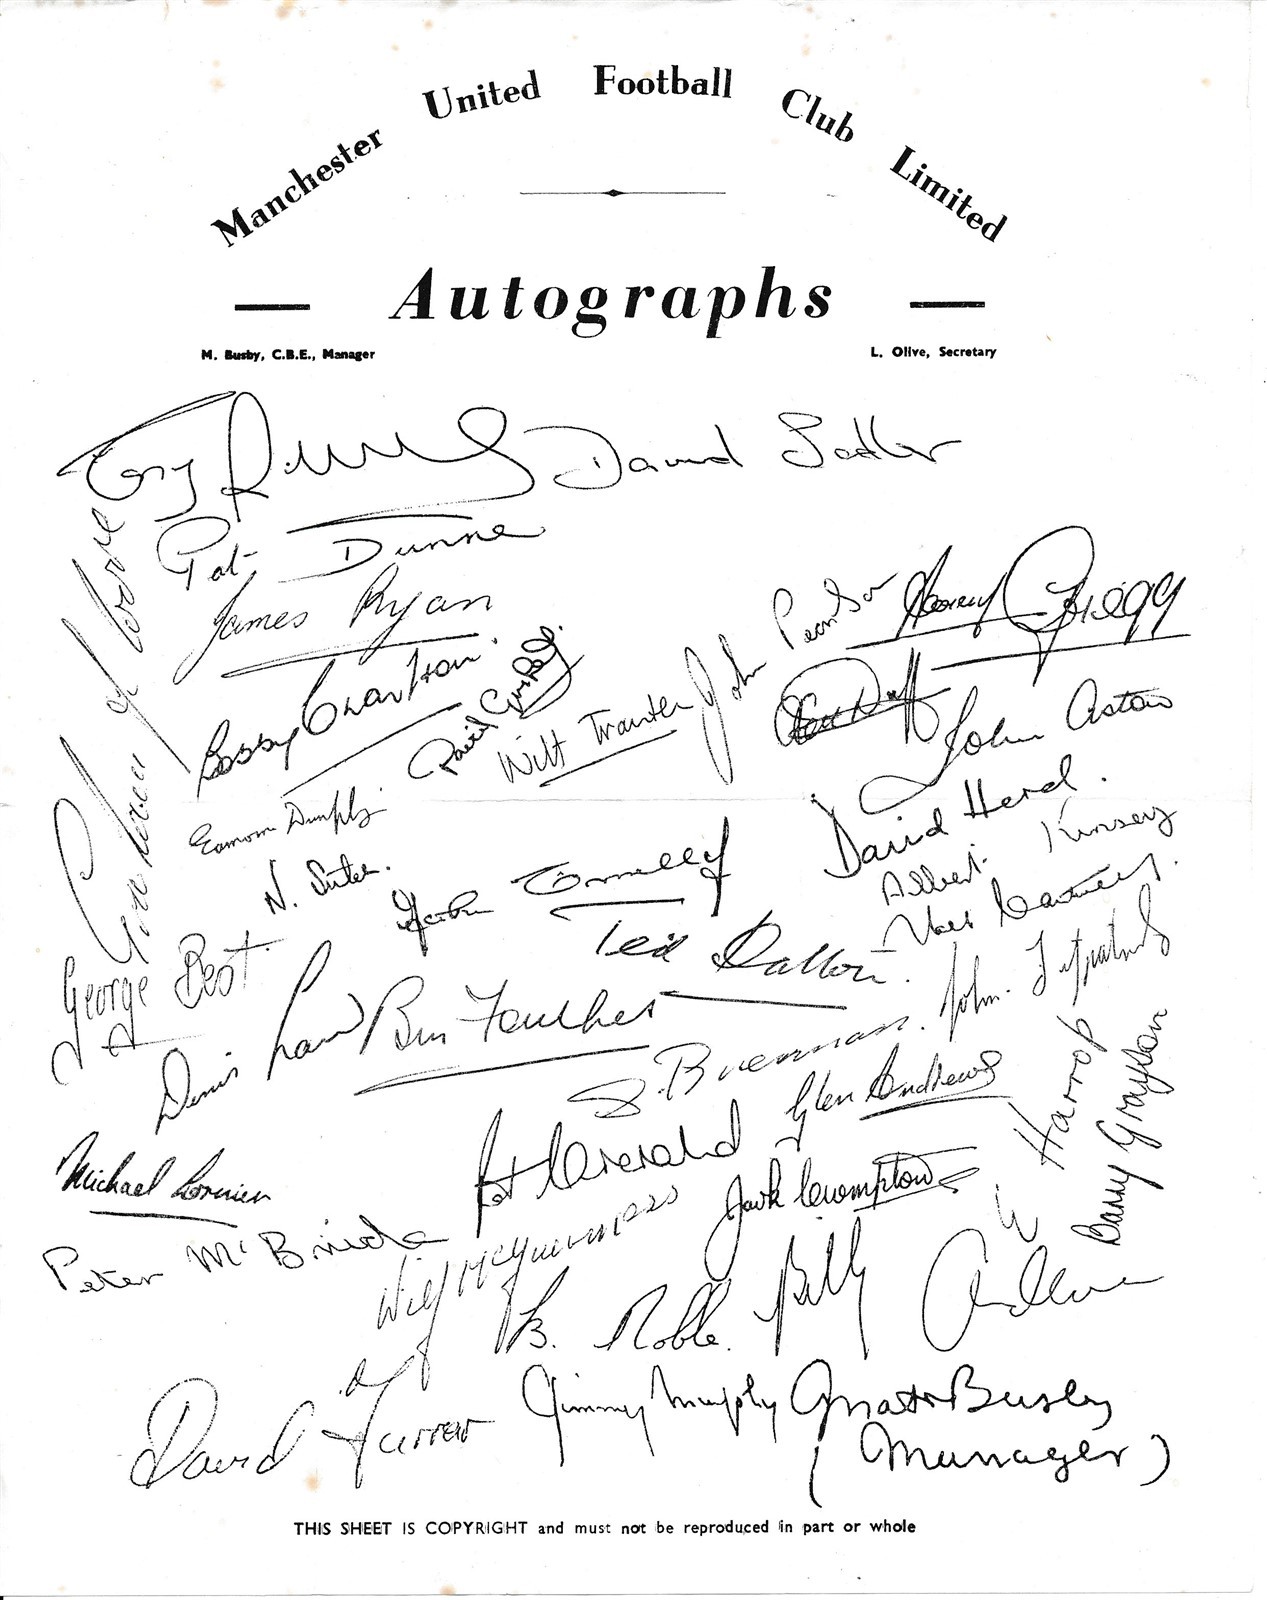 Manchester United Football Club Limited
Autographs
M. Busby, C.B.E., Manager
L. Olive, Secretary
David Sadler
Pat Dunne
James Ryan
Bobby Charlton.
Graham Moore
John Pearson
Harry Gregg
Wilf Tranter
John Aston
David Herd.
Eamonn Dunphy
Albert Kinsey
N. Stiles.
John Connelly
Noel Cantwell.
George Best
Ted Dalton.
John Fitzpatrick
Denis Law
S. Brennan.
Glen Andrews
Harrop
Barry Grayson
Michael Lorimer
Pat Crerand
Jack Crompton
Peter McBride
Wilf McGuinness
B. Noble.
Billy
David Farrar
Jimmy Murphy
Matt Busby
(Manager)
THIS SHEET IS COPYRIGHT and must not be reproduced in part or whole